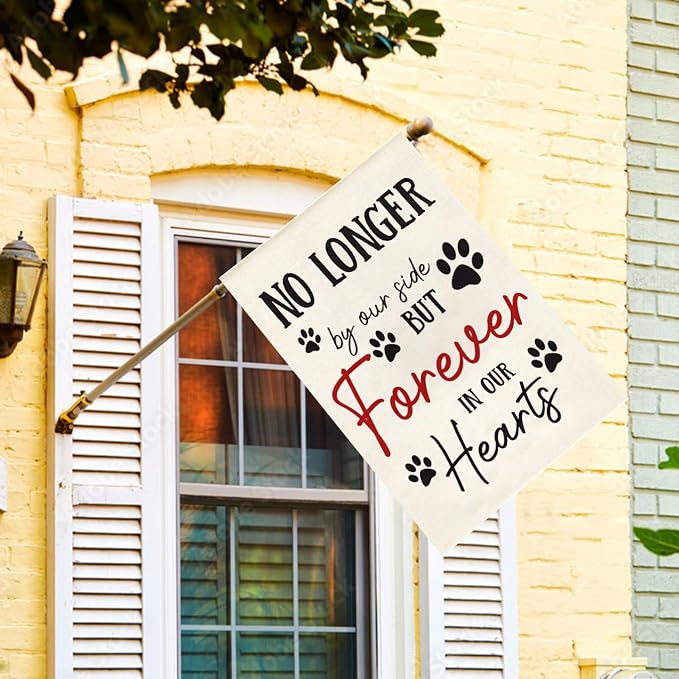 NO LONGER
by our side
BUT
Forever
IN OUR
Hearts